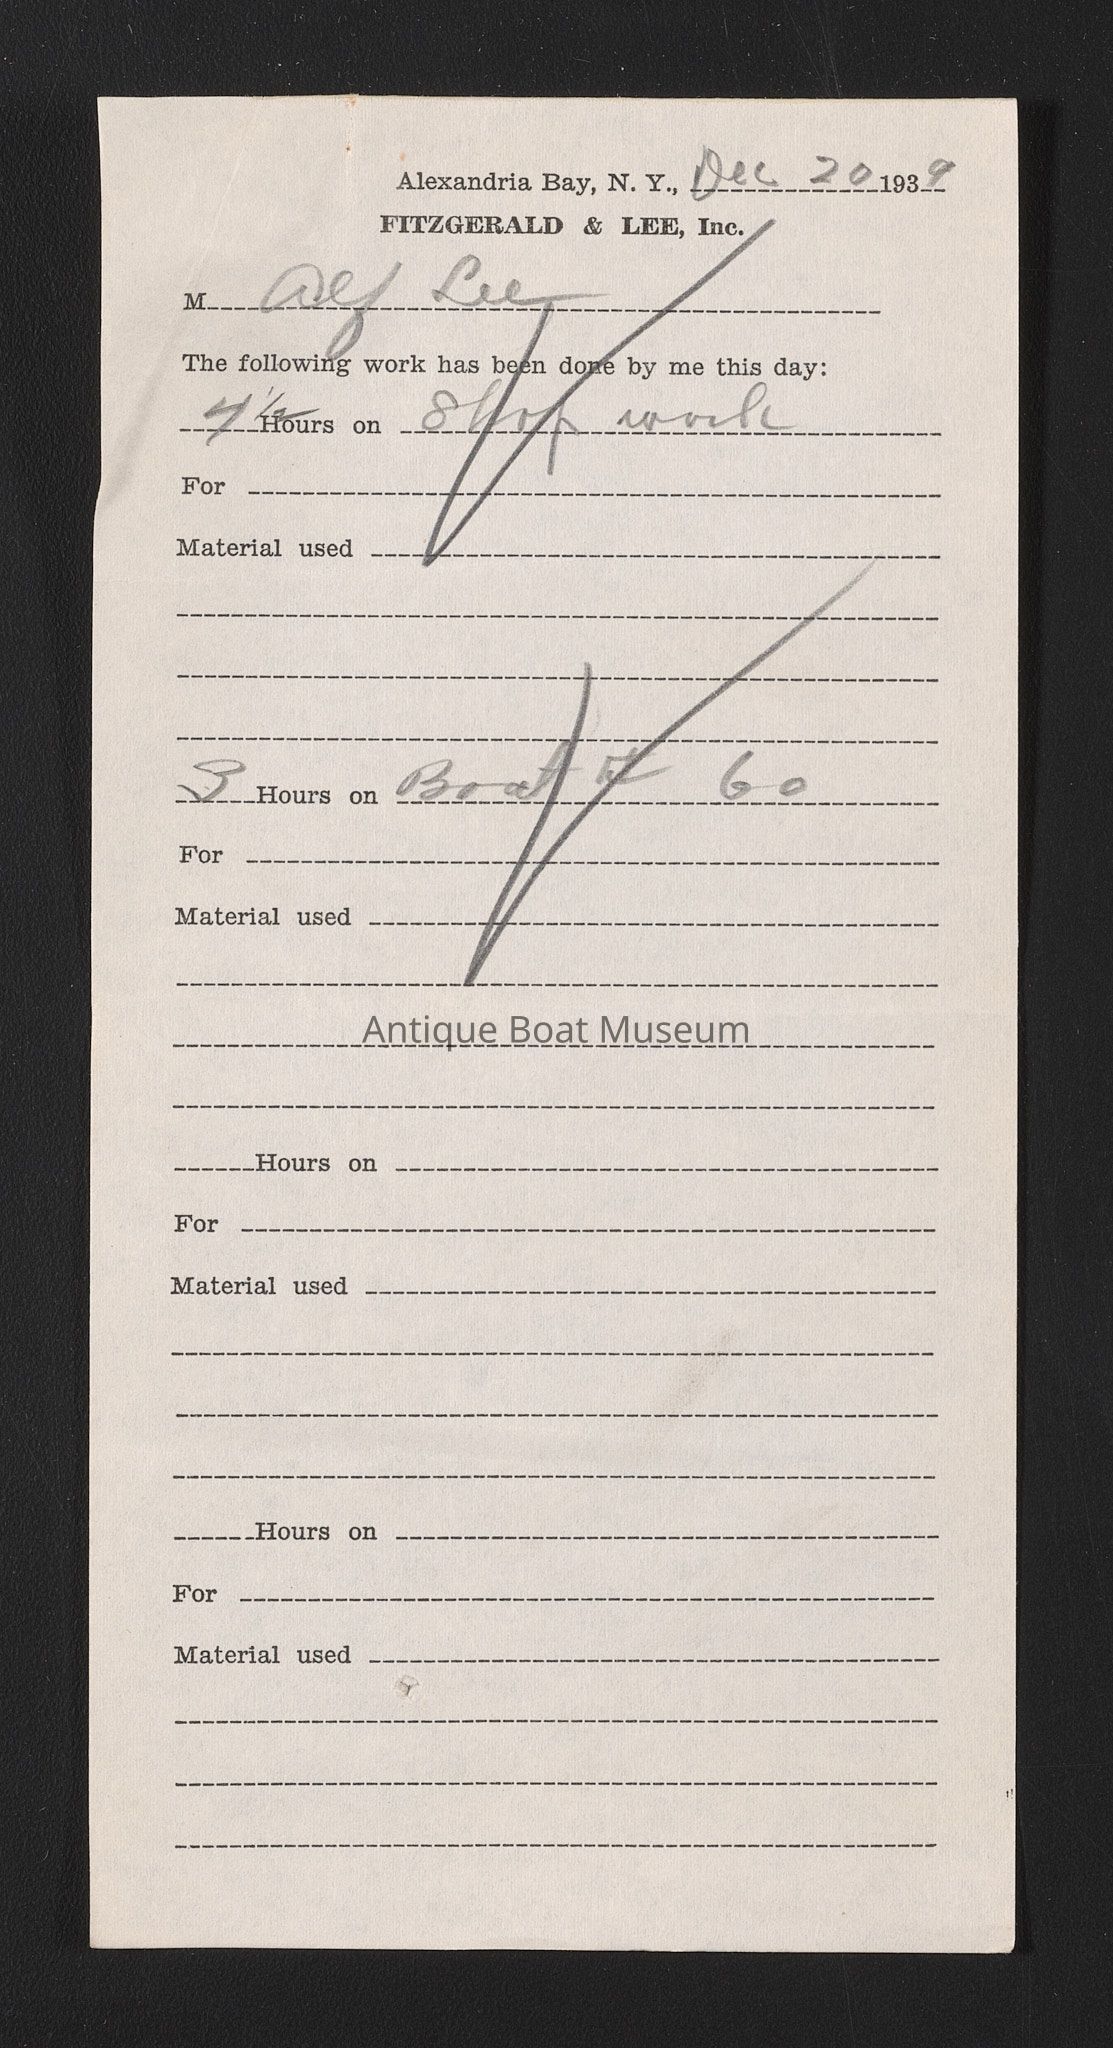 Alexandria Bay, N. Y., Dec 20 1939
FITZGERALD & LEE, Inc.
M Alf Lee
The following work has been done by me this day:
4 1/2 Hours on Shop work
For
Material used
3 Hours on Boat # 60
For
Material used
Antique Boat Museum
Hours on
For
Material used
Hours on
For
Material used